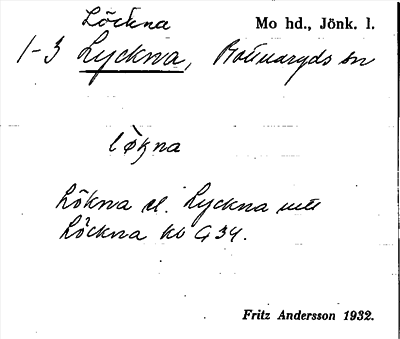 Löckna
Mo hd., Jönk. l.
1-3 Lyckna, Bottnaryds sn
lökna
Lökna el. Lyckna
Löckna kb G 34.
Fritz Andersson 1932.